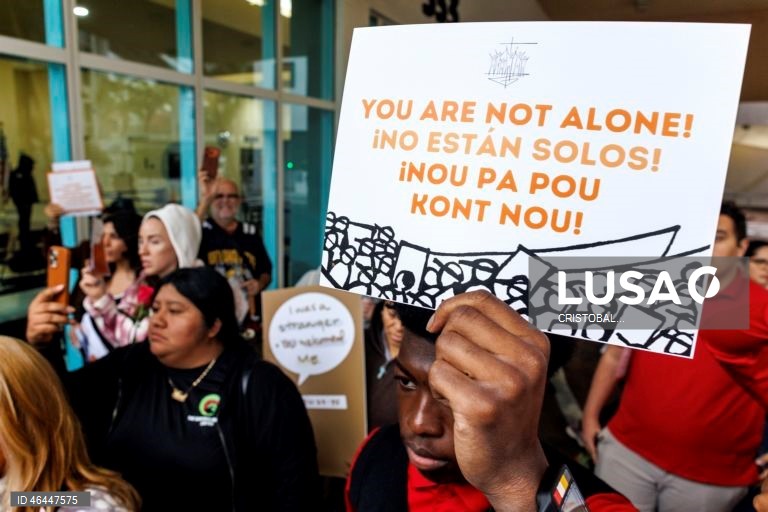 YOU ARE NOT ALONE!
¡NO ESTÁN SOLOS!
¡NOU PA POU
KONT NOU!
LUSA
CRISTOBAL...
I was a
stranger
Me.
ID 46447575